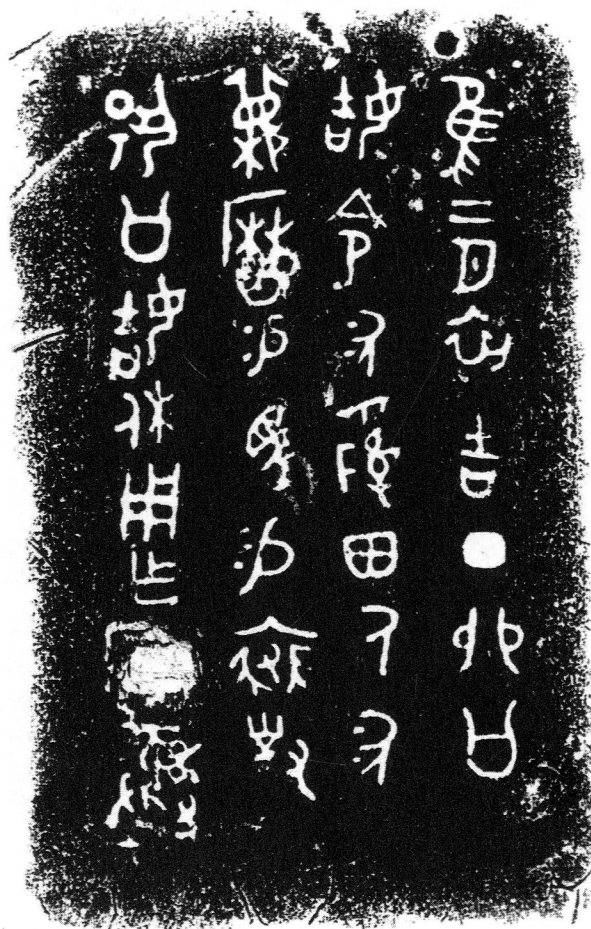 隹二月初吉丁卯公
姞令次𤔲田人次
蔑曆易馬易裘對
揚公姞休用乍寶彝